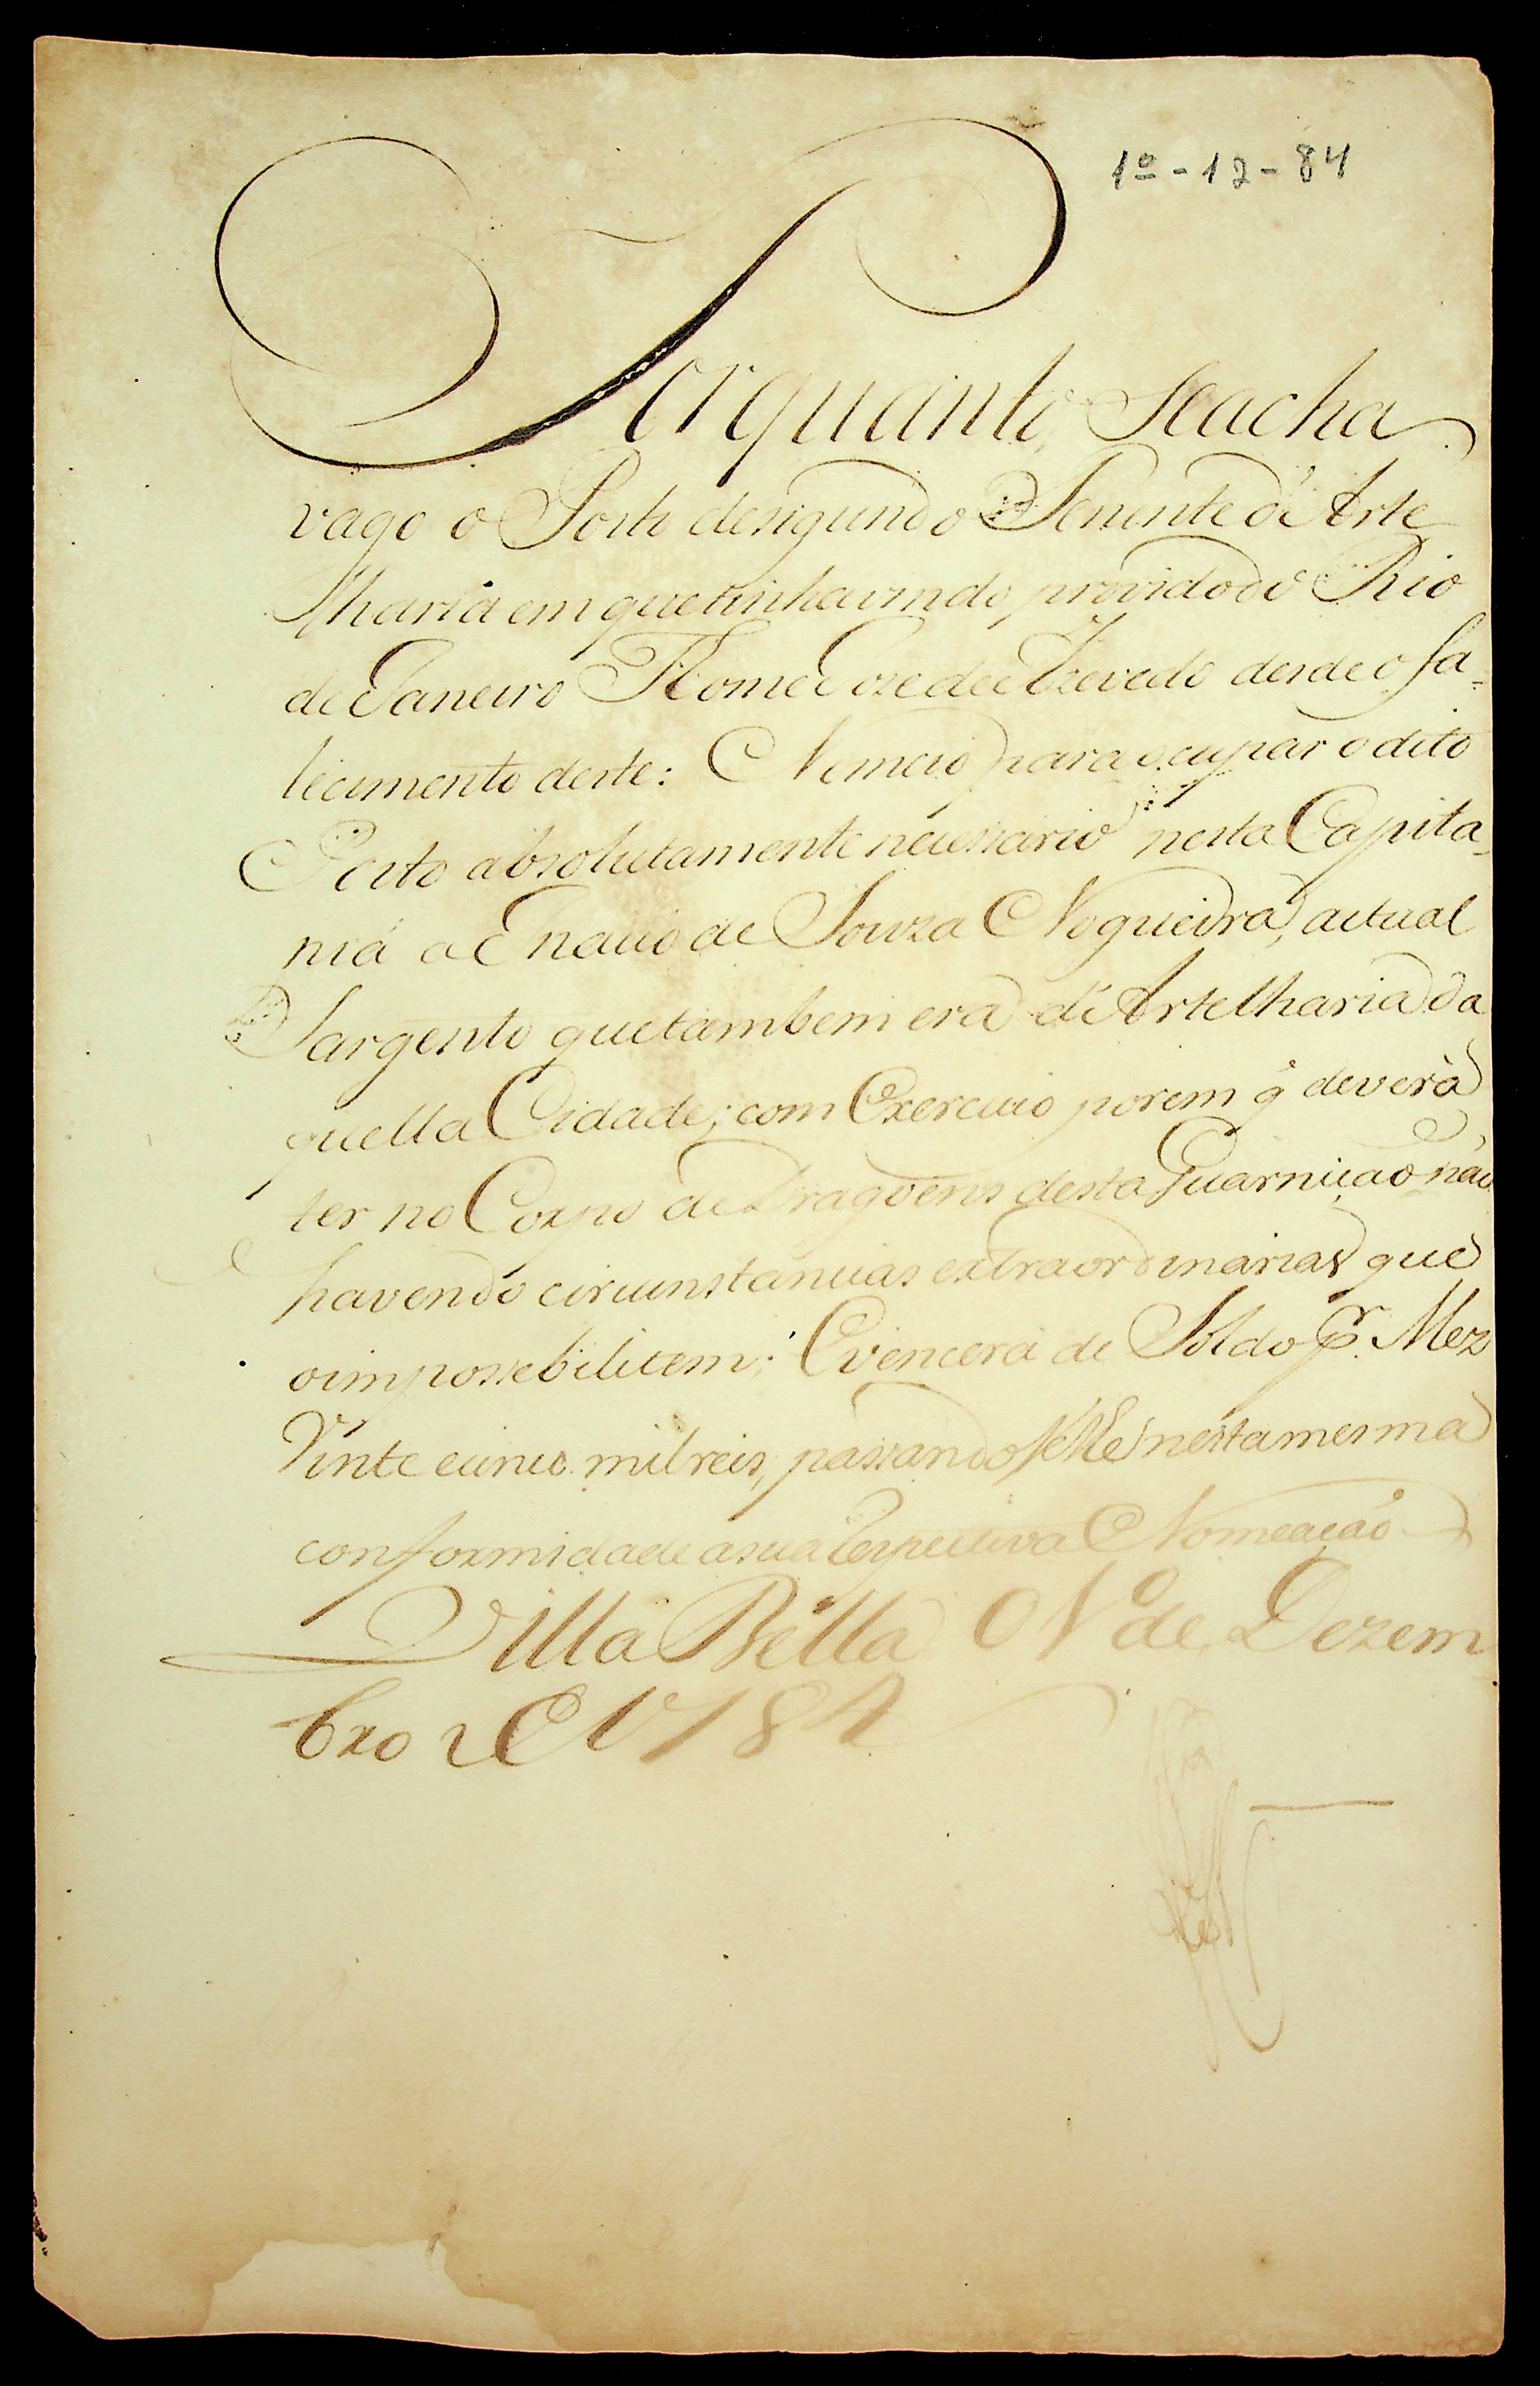 1º - 12 - 84
Porquanto Seacha
vago o Posto desegundo Tenente d'Arte
lharia em que tinha vindo provido do Rio
de Janeiro Thome Joze de Azevedo desde o fa-
lecimento deste: Nomeio para ocupar o dito
Posto absolutamente necessario nesta Capita
nia a Enacio de Souza Nogueira, actual
Sargento que tambem era d'Artelharia da
quella Cidade; com Exercicio porem q̃ deverà
ter no Corpo de Dragoens desta Guarnição não
havendo circunstancias extraordinarias que
o impossebilitem; E vencerá de Soldo pr. Mez
Vinte e cinco mil reis, passandoselhe nesta mesma
conformidade a sua respectiva Nomeação
Villa Bella o 1º de Dezem
bro de 1784